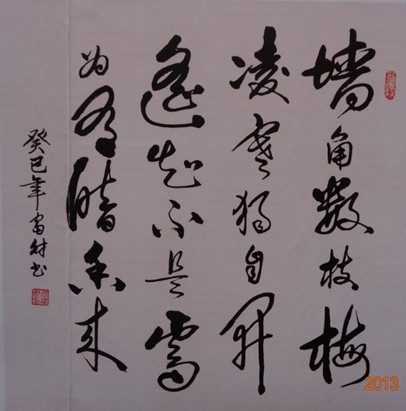 墙角数枝梅
凌寒独自开
遥知不是雪
为有暗香来
癸巳年富财书
2013